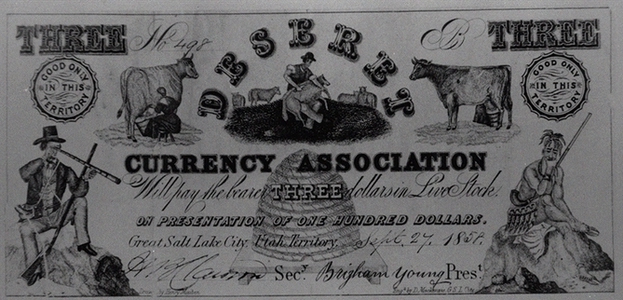 THREE No 498 B THREE
DESERET
GOOD ONLY IN THIS TERRITORY
GOOD ONLY IN THIS TERRITORY
CURRENCY ASSOCIATION
Will pay the bearer THREE dollars in Live Stock.
ON PRESENTATION OF ONE HUNDRED DOLLARS.
Great Salt Lake City, Utah Territory, Sept. 27, 1858.
Secy. Brigham Young Prest.